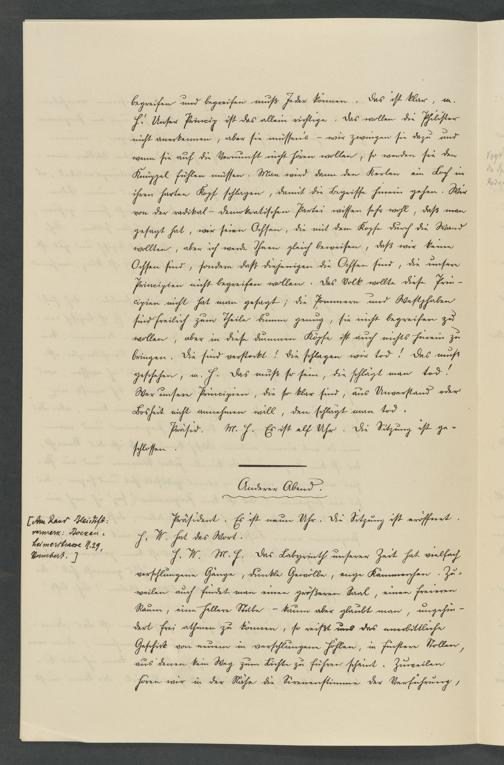 begreifen und begreifen muß Jeder können. Das ist klar, m.
H.! Unser Princip ist das allein richtige. Das wollen die Philister
nicht anerkennen, aber sie müssen's – wir zwingen sie dazu und
wenn sie auf die Vernunft nicht hören wollen, so werden sie den
Knüppel fühlen müssen. Man wird dann den Kerlen ein Loch in
ihren harten Kopf schlagen, damit die Begriffe hinein gehen. Wir
von der radikal-demokratischen Partei wissen sehr wohl, daß man
gesagt hat, wir seien Ochsen, die mit dem Kopfe durch die Wand
wollten, aber ich werde Ihnen gleich beweisen, daß wir keine
Ochsen sind, sondern daß diejenigen die Ochsen sind, die unsere
Principien nicht begreifen wollen. Das Volk wollte diese Prin-
cipien nicht hat man gesagt; die Pommern und Westphalen
sind freilich zum Theile dumm genug, sie nicht begreifen zu
wollen, aber in diese dummen Köpfe ist auch nichts hinein zu
bringen. Die sind verstockt! die schlagen wir tod! Das muß
geschehen, m. H. Das muß so sein, die schlägt man tod!
Wer unsere Principien, die so klar sind, aus Unverstand oder
Bosheit nicht annehmen will, den schlägt man tod.
Präsid. M. H. Es ist elf Uhr. Die Sitzung ist ge-
schlossen.
Anderer Abend.
[Am Rand Bleistift-
vermerk:
N. 29,
]
Präsident. Es ist neun Uhr. Die Sitzung ist eröffnet.
H. W. hat das Wort.
H. W. M. H. Das Labyrinth unserer Zeit hat vielfach
verschlungene Gänge, dunkle Gewölbe, enge Kammerchen. Zu-
weilen auch findet man einen größeren Saal, einen freieren
Raum, eine hellere Stelle – kaum aber glaubt man, ungehin-
dert frei athmen zu können, so reißt uns das unerbittliche
Geschick von neuem in verschlungene Höhlen, in finstere Stollen,
aus denen kein Weg zum Lichte zu führen scheint. Zuweilen
hören wir in der Nähe die Sirenenstimme der Verführung,